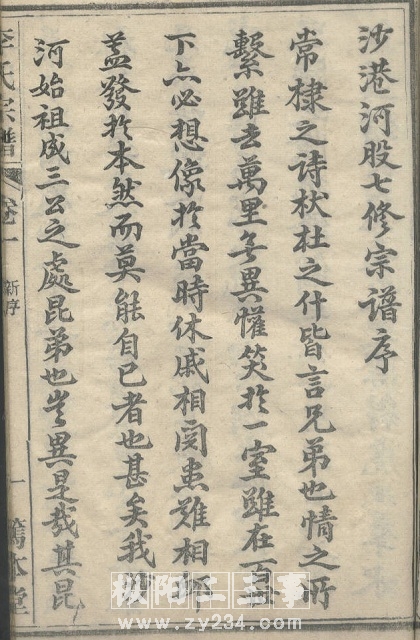 沙港河股七修宗谱序
常棣之诗杕杜之什皆言兄弟也情之所
繫雖去萬里無異懽笑於一室雖在百世
下亦必想像於當時休戚相関患難相卹
葢發於本然而莫能自已者也甚矣我
河始祖成三公之處昆弟也豈異是哉其昆
李氏宗譜
卷一
新序
一
篤本堂
枞阳二三事
www.zy234.com